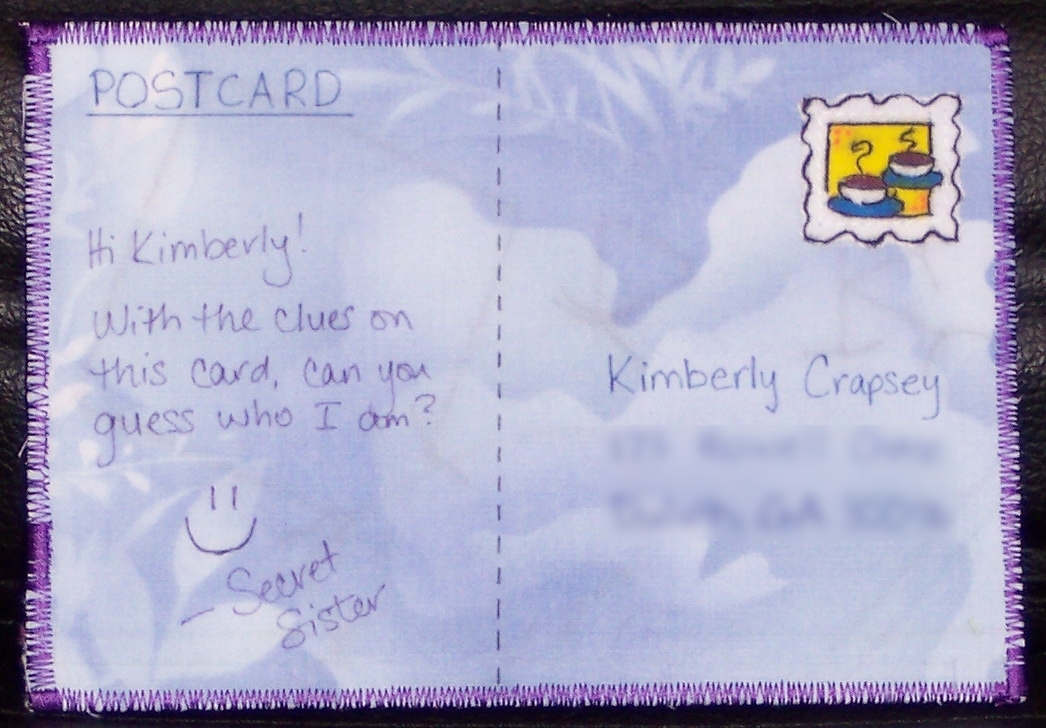 POSTCARD
Hi Kimberly!
With the clues on
this card, can you
guess who I am?
– Secret
Sister
Kimberly Crapsey